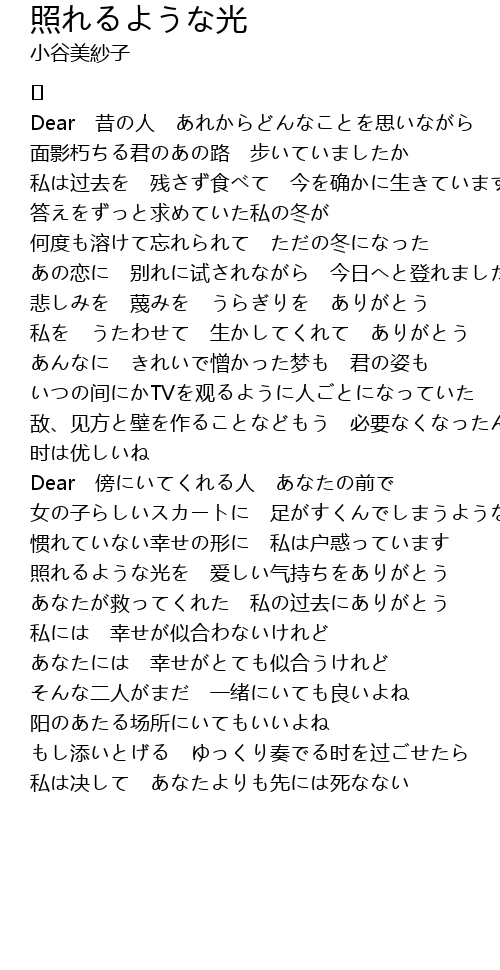 照れるような光
小谷美紗子
[]
Dear　昔の人　あれからどんなことを思いながら
面影朽ちる君のあの路　歩いていましたか
私は过去を　残さず食べて　今を确かに生きています
答えをずっと求めていた私の冬が
何度も溶けて忘れられて　ただの冬になった
あの恋に　别れに试されながら　今日へと登れました
悲しみを　蔑みを　うらぎりを　ありがとう
私を　うたわせて　生かしてくれて　ありがとう
あんなに　きれいで憎かった梦も　君の姿も
いつの间にかTVを观るように人ごとになっていた
敌、见方と壁を作ることなどもう　必要なくなったん
时は优しいね
Dear　傍にいてくれる人　あなたの前で
女の子らしいスカートに　足がすくんでしまうような
惯れていない幸せの形に　私は户惑っています
照れるような光を　爱しい气持ちをありがとう
あなたが救ってくれた　私の过去にありがとう
私には　幸せが似合わないけれど
あなたには　幸せがとても似合うけれど
そんな二人がまだ　一绪にいても良いよね
阳のあたる场所にいてもいいよね
もし添いとげる　ゆっくり奏でる时を过ごせたら
私は决して　あなたよりも先には死なない